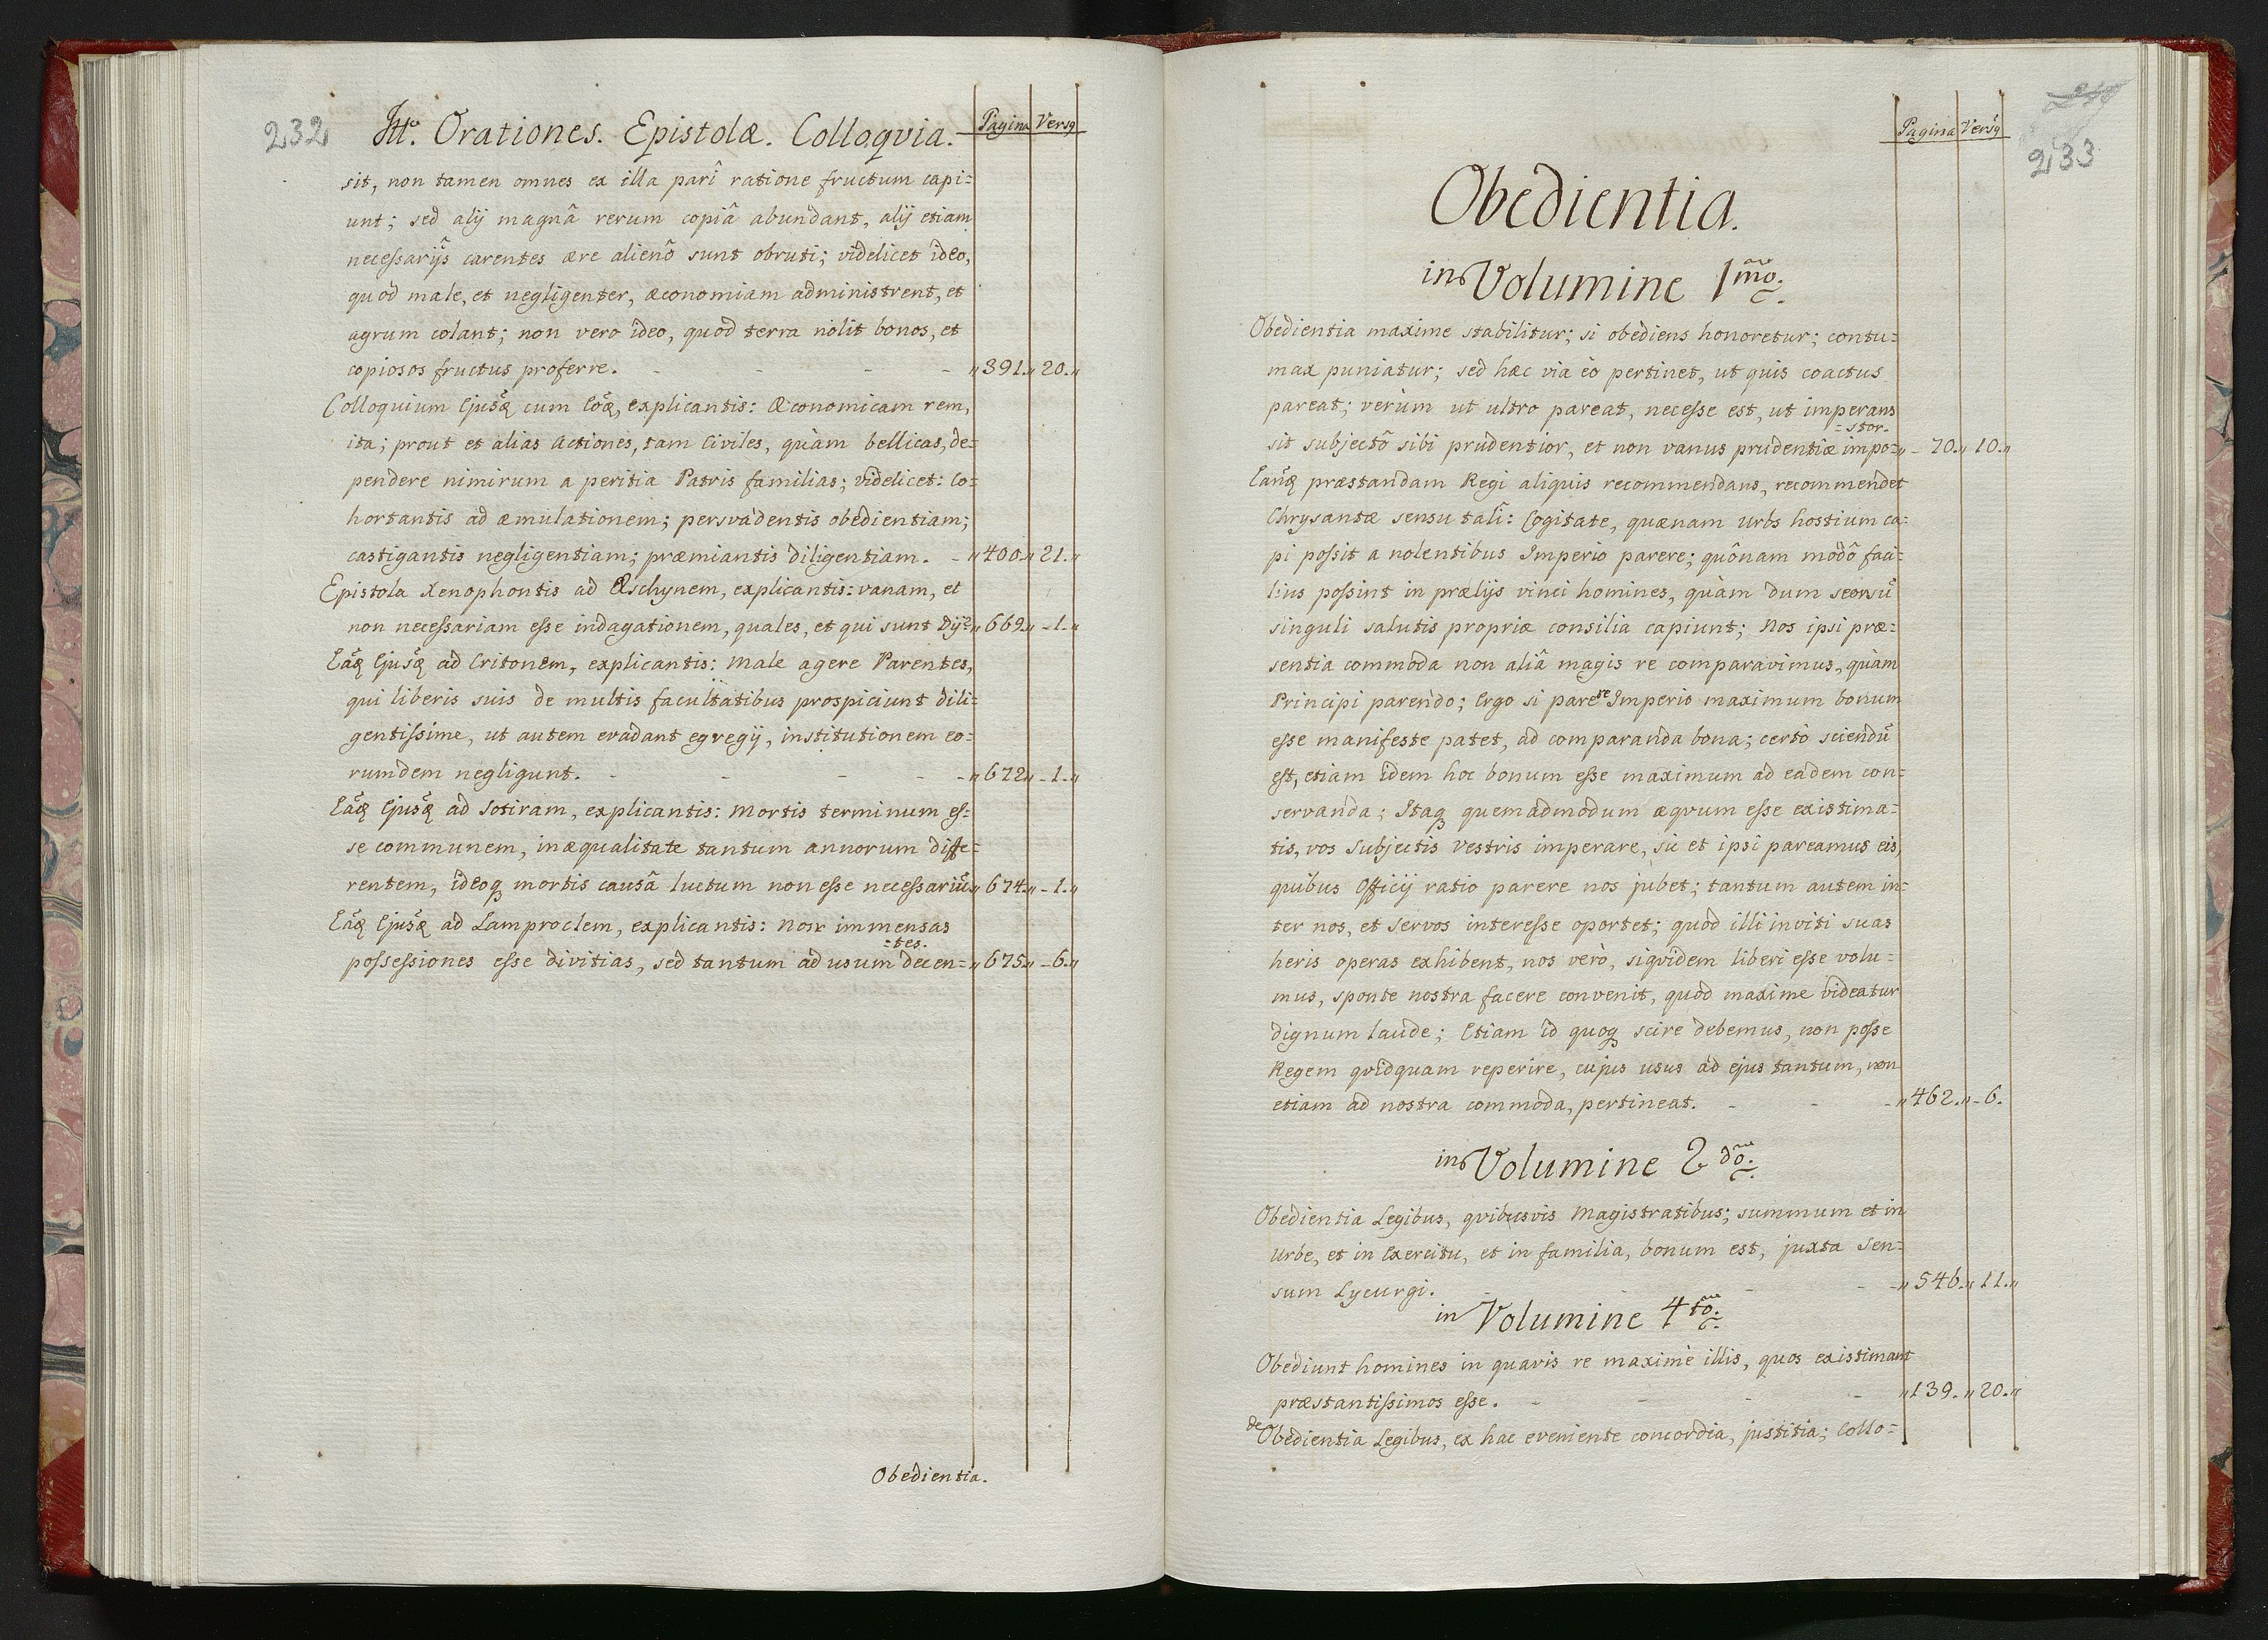 232
Ttto. Orationes. Epistolæ. Colloqvia.
Pagina Versq
sit, non tamen omnes ex illa parî ratione fructum capi=
unt; sed alij magnâ rerum copiâ abundant, alij etiam
necessarijs carentes ære alienô sunt obruti; videlicet ideo,
quod male, et negligenter, œconomiam administrent, et
agrum colant; non vero ideo, quod terra nolit bonos, et
copiosos fructus proferre. - - - - „391.„20.„
Colloquium Ejusq cum Eoq, explicantis: Œconomicam rem,
ita; prout et alias Actiones, tam Civiles, quàm bellicas, de=
pendere nimirum a peritia Patris familias; videlicet: Co=
hortantis ad æmulationem; persvadentis obedientiam;
castigantis negligentiam; præmiantis diligentiam. - „400.„21.„
Epistola Xenophontis ad Æschynem, explicantis: vanam, et
non necessariam esse indagationem, quales, et qui sunt Dij? „669.„-1.„
Eaq Ejusq ad Critonem, explicantis: Male agere Parentes,
qui liberis suis de multis facultatibus prospiciunt dili=
gentissime, ut autem evadant egregij, institutionem eo=
rumdem negligunt. - - - - - „672.„-1.„
Eaq Ejusq ad Sotiram, explicantis: Mortis terminum es=
se communem, inæqualitate tantum annorum diffe=
rentem, ideoq mortis causâ luctum non esse necessariũ „674.„-1.„
Eaq Ejusq ad Lamproclem, explicantis: Non immensas
possessiones esse divitias, sed tantum ad usum decen= „675.„-6.„
=tes.
Obedientia.
233
Pagina Versq
Obedientia.
in Volumine 1mo.
Obedientia maxime stabilitur; si obediens honoretur; contu=
max puniatur; sed hæc via eò pertinet, ut quis coactus
pareat; verùm ut ultro pareat, necesse est, ut imperans
sit subjectô sibi prudentior, et non vanus prudentiæ impo= „-70.„10.„
=stor.
Eanq præstandam Regi aliquis recommendans, recommendet
Chrysantæ sensu talî: Cogitate, quænam Urbs hostium ca=
pi possit a nolentibus Imperio parere; quônam modô faci=
lius possint in prælijs vinci homines, quàm dum seorsũ
singuli salutis propriæ consilia capiunt; Nos ipsi præ=
sentia commoda non aliâ magis re comparavimus, quàm
Principi parendo; Ergo si parere Imperio maximum bonum
esse manifeste patet, ad comparanda bona; certò sciendũ
est, etiam idem hoc bonum esse maximum ad eadem con=
servanda; Itaq quemadmodum æqvum esse existima=
tis, vos Subjectis vestris imperare, sic et ipsi pareamus eis,
quibus Officij ratio parere nos jubet; tantum autem in=
ter nos, et servos interesse oportet; quod illi inviti suas
heris operas exhibent, nos verò, siqvidem liberi esse volu=
mus, sponte nostra facere convenit, quod maxime videatur
dignum laude; Etiam id quoq scire debemus, non posse
Regem qvidquam reperire, cujus usus ad ejus tantum, non
etiam ad nostra commoda, pertineat. - - - „462.„-6.
in Volumine 2do.
Obedientia Legibus, qvibusvis Magistratibus; summum et in
Urbe, et in Exercitu, et in familia, bonum est, juxta sen=
sum Lycurgi. - - - - „546.„11.„
in Volumine 4to.
Obediunt homines in quavis re maximè illis, quos existimant
præstantissimos esse. - - - - „139.„20.„
de Obedientia Legibus, ex hac eveniente concordia, justitia; Collo=